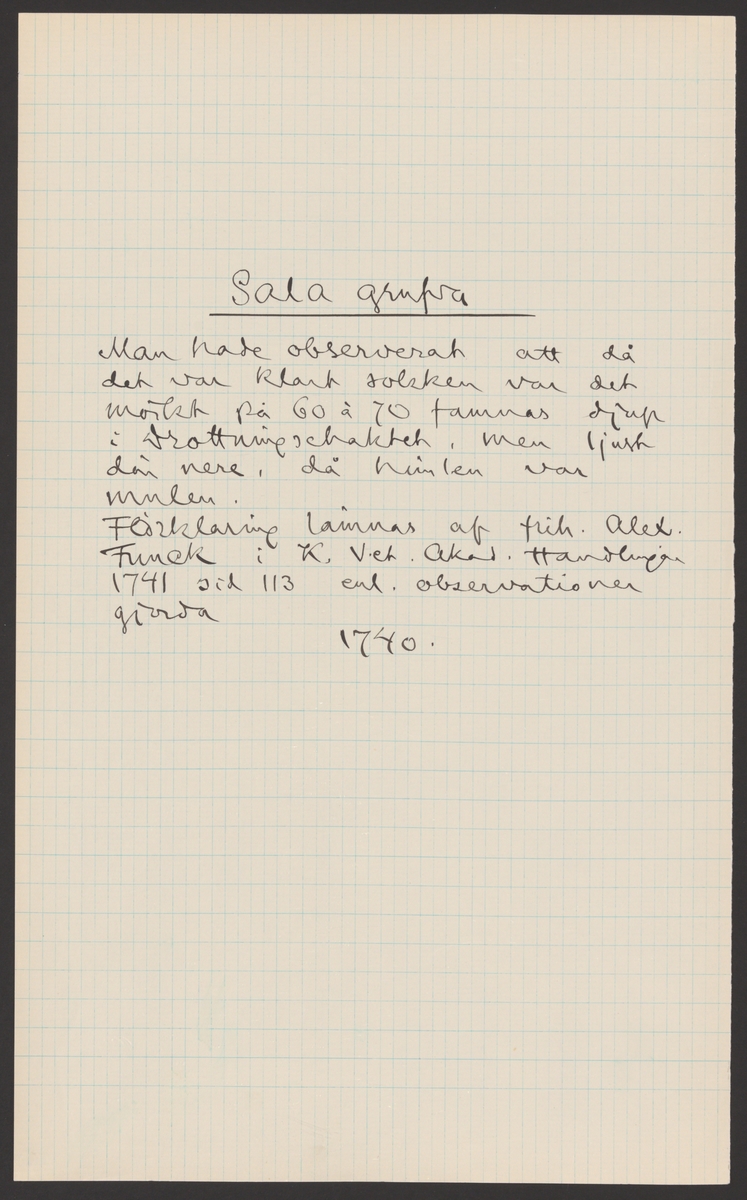 Sala grufva
Man hade observerat att då
det var klart solsken var det
mörkt på 60 à 70 famnas djup
i Drottningschaktet, men ljust
där nere, då himlen var
mulen.
Förklaring lämnas af frih. Alex.
Funck i K. Vet. Akad. Handlingar
1741 sid 113 enl. observationer
gjorda
1740.